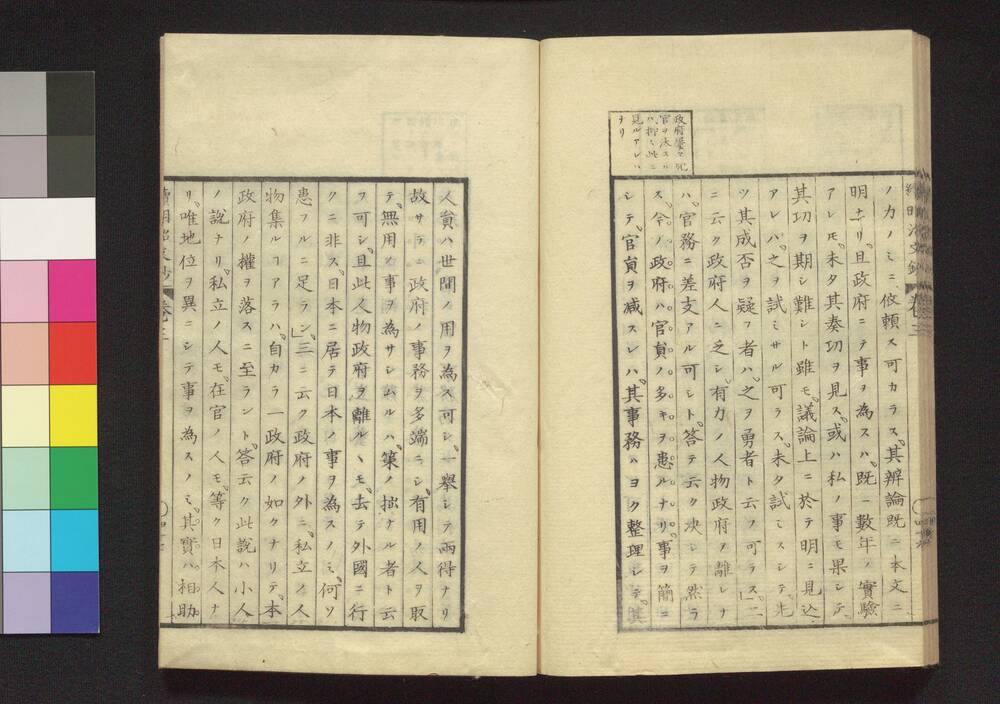 政府屢々冗
官ヲ汰スル
ナリ
ノ力ノミニ依頼ス可カラス其辨論既ニ本文ニ
明ナリ且政府ニテ事ヲ為スハ既ニ數年ノ實驗
アレ𪜈未タ其奏功ヲ見ス或ハ私ノ事モ果シテ
其功ヲ期シ難シト雖モ議論上ニ於テ明ニ見込
アレバ之ヲ試ミサル可ラス未タ試ミスシテ先
ツ其成否ヲ疑フ者ハ之ヲ勇者ト云フ可ラス」二
ニ云ク政府人ニ乏シ有力ノ人物政府ヲ離レナ
ハ官務ニ差支アル可シト答テ云ク決シテ然ラ
ス今ノ政府ハ官員ノ多キヲ患ルナリ事ヲ簡ニ
シテ官員ヲ減スレハ其事務ハヨク整理シテ其
人員ハ世間ノ用ヲ為ス可シ一擧シテ兩得ナリ
故サラニ政府ノ事務ヲ多端ニシ有用ノ人ヲ取
テ無用ノ事ヲ為サシムルハ策ノ拙ナル者ト云
フ可シ且此人物政府ヲ離ルヽモ去テ外國ニ行
クニ非ス日本ニ居テ日本ノ事ヲ為スノミ何ソ
患フルニ足ラン」三ニ云ク政府ノ外ニ私立ノ人
物集ルヿアラハ自カラ一政府ノ如クナリテ本
政府ノ權ヲ落スニ至ラント答云ク此説ハ小人
ノ説ナリ私立ノ人モ在官ノ人モ等ク日本人ナ
リ唯地位ヲ異ニシテ事ヲ為スノミ其實ハ相助
續明治文鈔 卷三